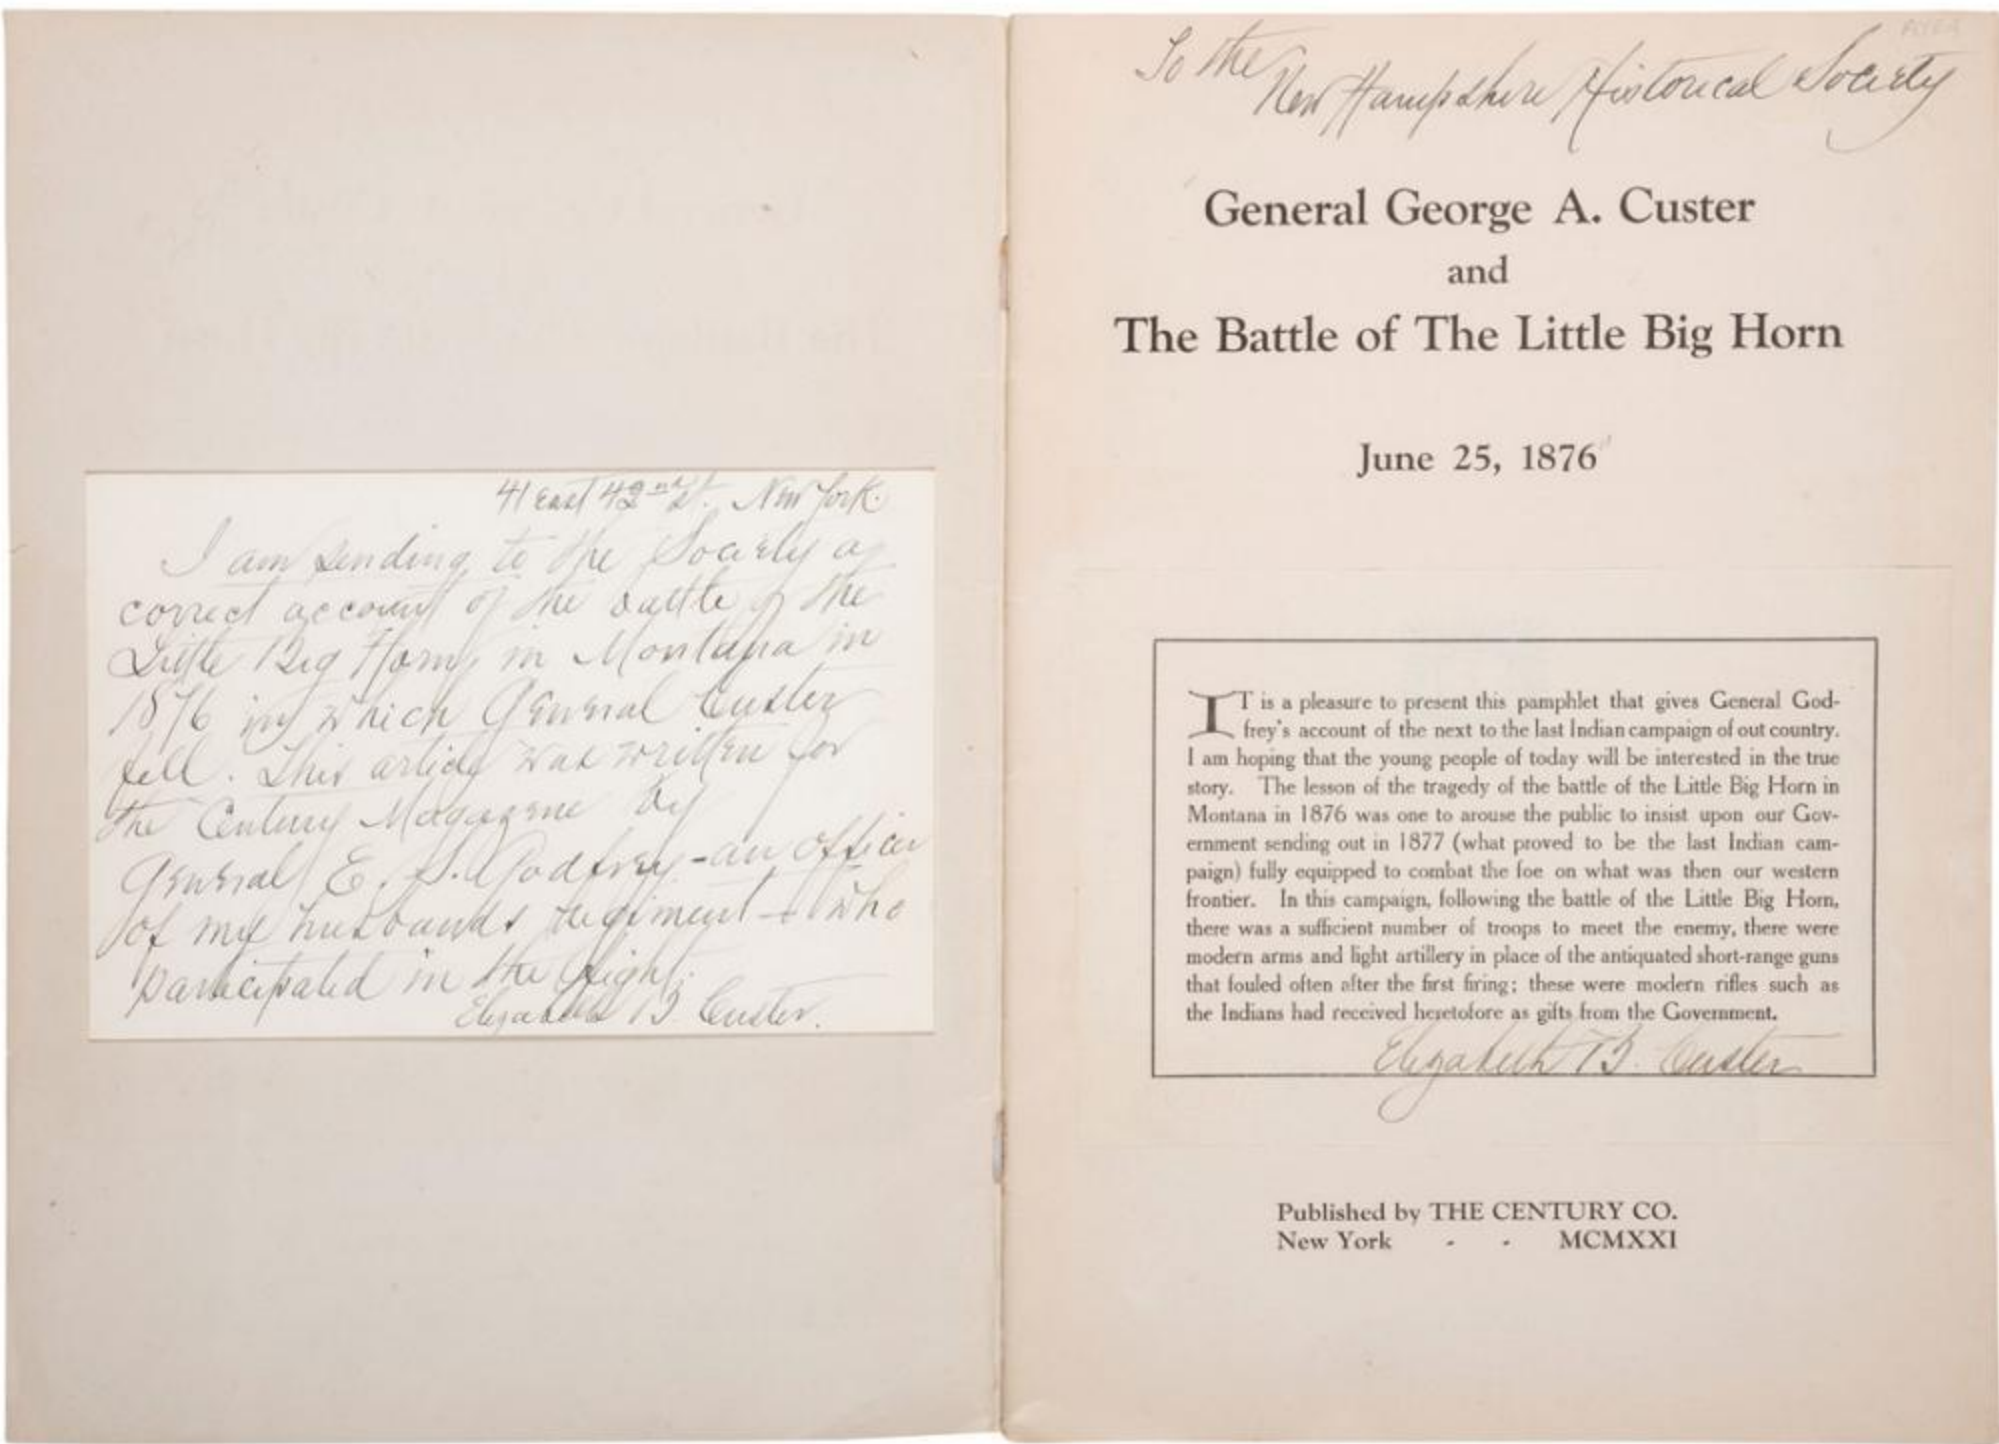 41 East 42nd St. New York.
I am sending to the Society a
correct account of the battle of the
Little Big Horn, in Montana in
1876 in which General Custer
fell. This article was written for
the Century Magazine by
General E. S. Godfrey - an officer
of my husbands regiment - who
participated in the fight.
Elizabeth B. Custer.
To the
New Hampshire Historical Society
General George A. Custer
and
The Battle of The Little Big Horn
June 25, 1876
IT is a pleasure to present this pamphlet that gives General God-
frey's account of the next to the last Indian campaign of out country.
I am hoping that the young people of today will be interested in the true
story. The lesson of the tragedy of the battle of the Little Big Horn in
Montana in 1876 was one to arouse the public to insist upon our Gov-
ernment sending out in 1877 (what proved to be the last Indian cam-
paign) fully equipped to combat the foe on what was then our western
frontier. In this campaign, following the battle of the Little Big Horn,
there was a sufficient number of troops to meet the enemy, there were
modern arms and light artillery in place of the antiquated short-range guns
that fouled often after the first firing; these were modern rifles such as
the Indians had received heretofore as gifts from the Government.
Elizabeth B. Custer
Published by THE CENTURY CO.
New York - - MCMXXI